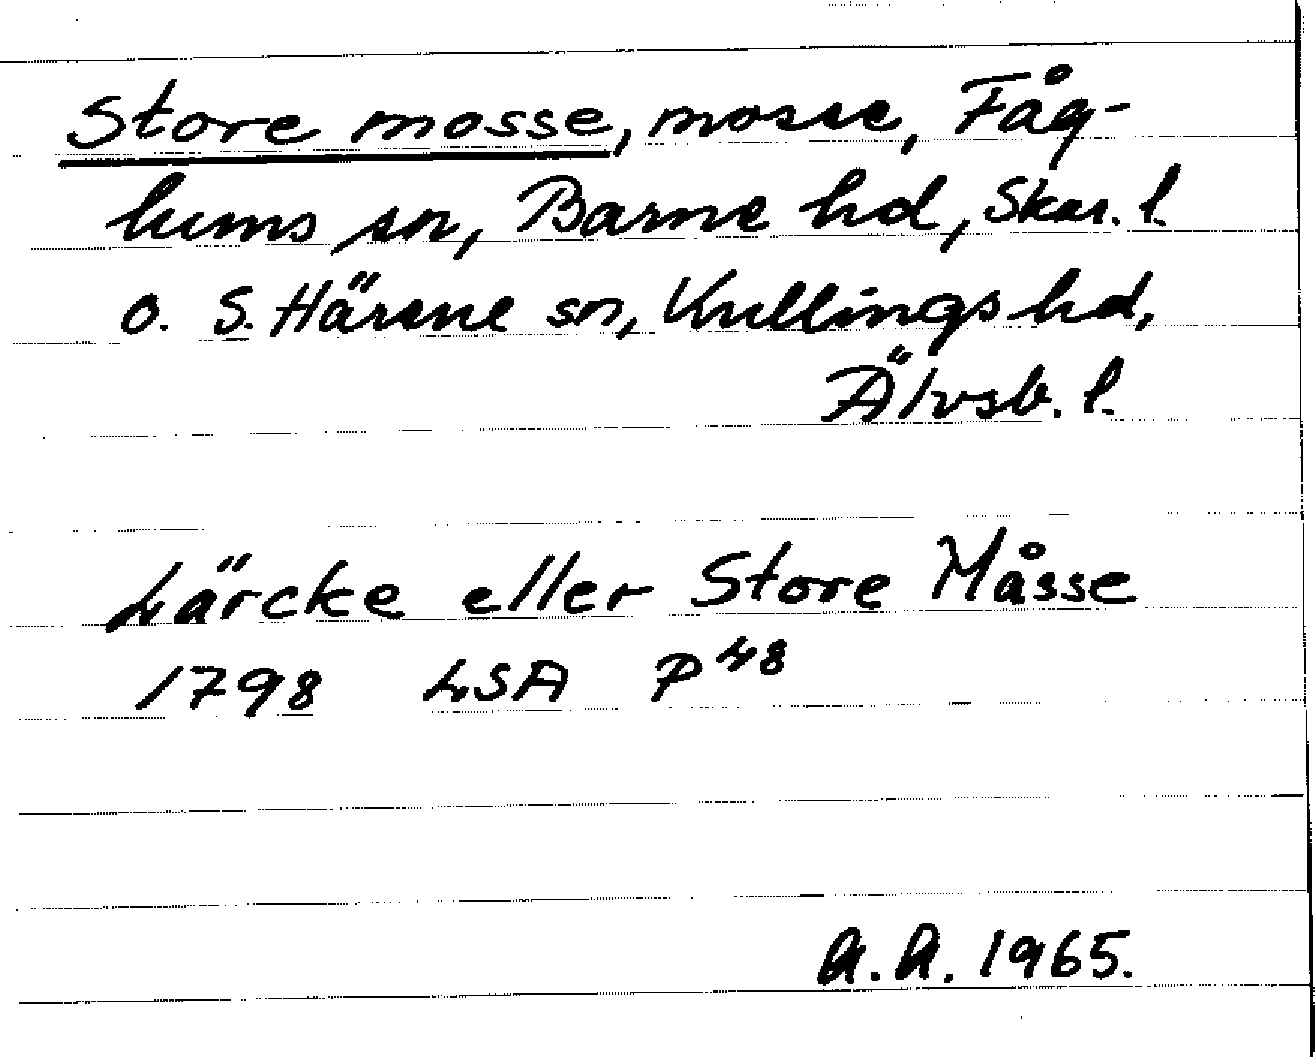 Store mosse, mosse, Fåg-
lums sn, Barne hd, Skar. l.
o. S. Härene sn, Kullings hd,
Älvsb. l.
Lärcke eller Store Måsse
1798 LSA P48
A.A. 1965.